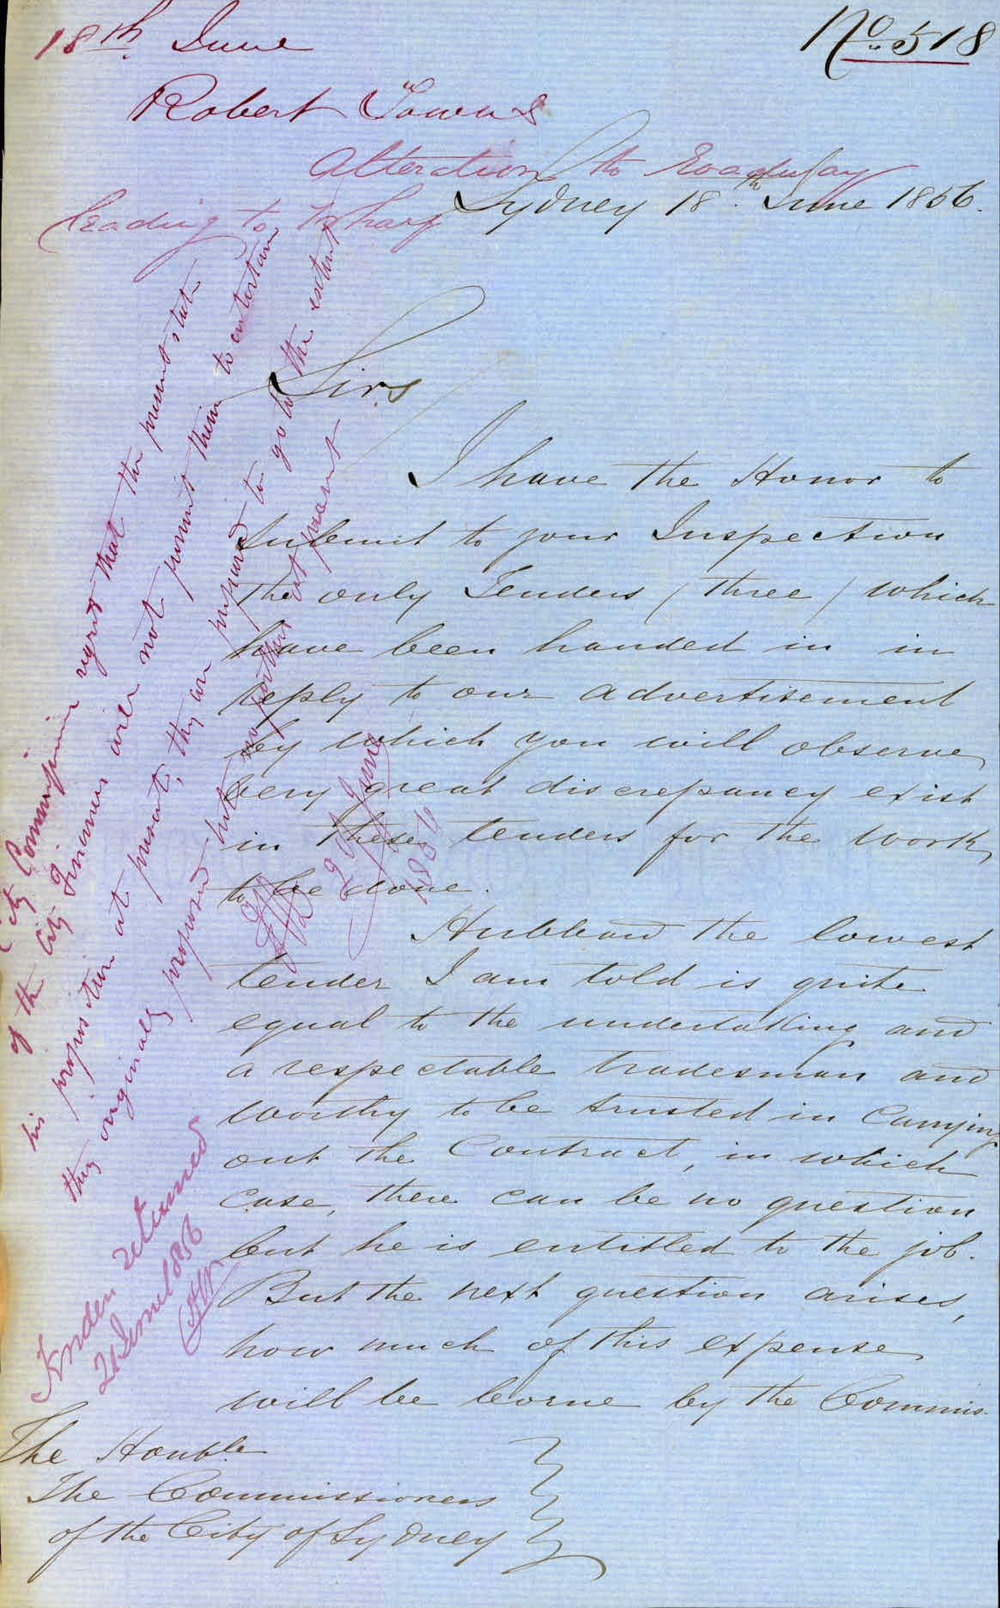 18th June
No. 518
Robert Towns
Alteration to Roadway
leading to Wharf
Sydney 18th June 1856.
Sirs
I have the Honor to
Submit to your Inspection
the only Tenders (three) which
have been handed in in
reply to our advertisement
by which you will observe,
very great discrepancy exist
in these tenders for the work,
to be done.
Hubbard the lowest
tender I am told is quite
equal to the undertaking and
a respectable tradesman and
worthy to be trusted in carrying
out the Contract, in which
case, there can be no question
but he is entitled to the job.
But the next question arises,
how much of this expense,
will be borne by the Commis
The Honble
The Commissioners
of the City of Sydney
City Commissioners regret that the present state
of the City Finances will not permit them to entertain
his proposition at present, they are prepared to go to the extent
they originally proposed but no further at present
June
1856
Tenders returned
21 June 1856